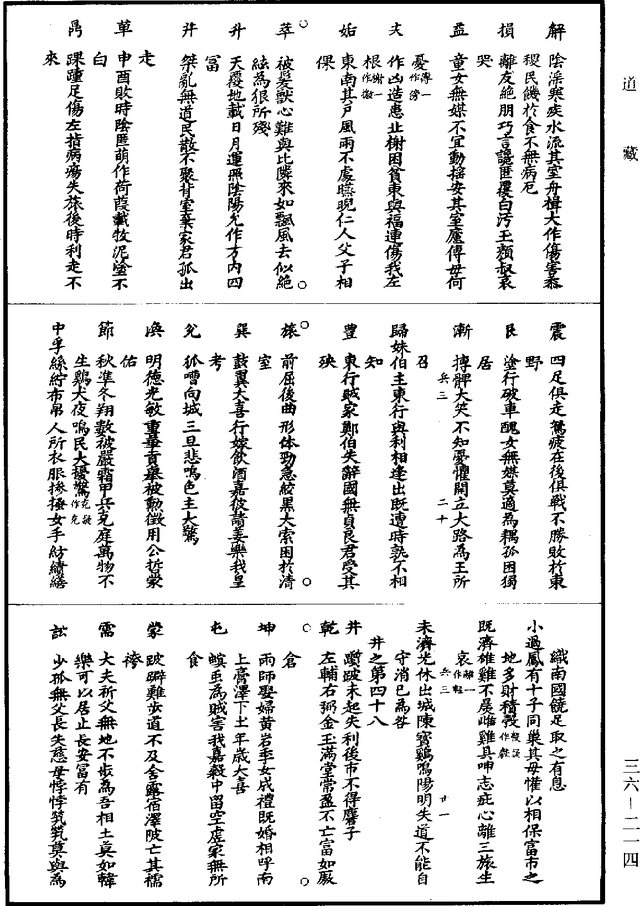 道藏
解　陰淫寒疾水流其室舟楫大作傷害黍
稷民饑於食不無病厄
損　離友絕朋巧言讒慝覆白污玉顏叔哀
哭
益　童女無媒不宜動搖安其室廬傅母何
憂傅一作傍
夬　作凶造患北檄困貧東與福連傷我左
根檄一作徼
姤　東南其戶風雨不處曣晛仁人父子相
保
萃　被髮獸心難與比鄰來如飄風去似絕
絃為狼所殘
升　天覆地載日月運照陰陽允作方內四
富
井　桀亂無道民散不聚背室棄家君孤出
走
革　申酉敗時陰匿萌作荷葭載牧泥塗不
白
鼎　踝踵足傷左指病瘍失旅後時利走不
來
震　四足俱走駑疲在後俱戰不勝敗於東
野
艮　塗行破車醜女無媒莫適為耦孤困獨
居
漸　摶髀大笑不知憂懼開立大路為王所
召
兵三　二十
歸妹　伯主東行與利相逢出既遭時孰不相
知
豐　東行賊家鄭伯失辭國無貞良君受其
殃
旅　前屈後曲形体勁急絞黑大索困於清
室
巽　鼓翼大喜行嫁飲酒嘉彼諸姜樂我皇
考
兌　狐嘈向城三旦悲鳴邑主大驚
渙　明德克敏重華貢舉被勳徵用公哲蒙
佑
節　秋隼冬翔數被嚴霜甲兵充庭萬物不
生雞犬夜鳴民大擾驚充疑作克
中孚　絲紵布帛人所衣服摻摻女手紡績繕
織南國饒足取之有息
小過　鳳有十子同巢其母懽以相保富市之
地多財積穀
既濟　雄雞不晨雌雞且呻志疵心離三旅生
哀離一作輕
兵三　廿一
未濟　光休出城陳寶雞鳴陽明失道不能自
守消亡為咎
井之第四十八
井　躓跛未起失利後市不得麞子
乾　左輔右弼金玉滿堂常盈不亡富如厫
倉
坤　雨師娶婦黃岩季女成禮既婚相呼南
上膏澤下土年歲大喜
屯　螟䖝為賊害我嘉穀中留空虛家無所
食
蒙　跛躃難步遲不及舍露宿澤陂亡其襦
袴
需　大夫祈父無地不涉為吾相土莫如韓
樂可以居止長安富有
訟　少孤無父長失慈母悖悖煢煢莫與為
三六—二一四